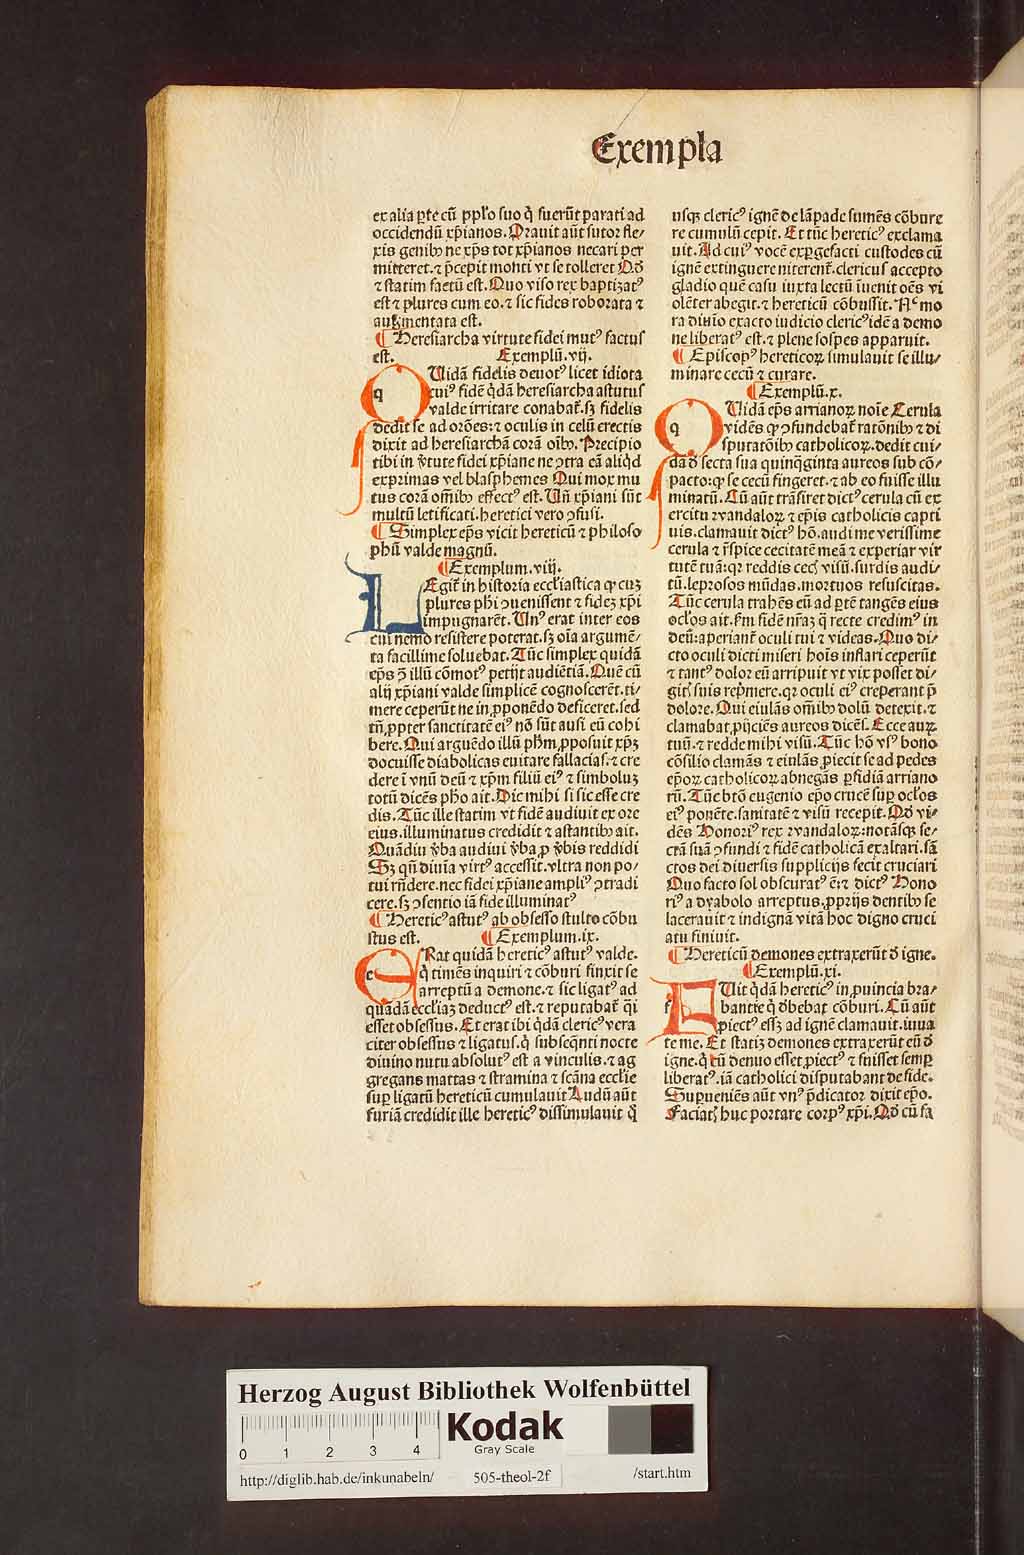 Exempla
ex alia ꝑte cū ppl̓o suo q̇ fuerūt parati ad
occidendū xp̄ianos. Orauit aūt sutor fle/
xis genibꝰ ne xp̄s tot xp̄ianos necari per
mitteret. ⁊ p̄cepit monti vt se tolleret Qđ
⁊ statim factū est. Quo viso rex baptizatꝰ
est ⁊ plures cum eo. ⁊ sic fides roborata ⁊
augmentata est.
¶ Heresiarcha virtute fidei mutꝰ factus
est. Exemplū. vij.
QUidā fidelis deuotꝰ licet idiota
cuiꝰ fidē q̇dā heresiarcha astutus
valde irritare conabat̄. sꝫ fidelis
dedit se ad orōes: ⁊ oculis in celū erectis
dixit ad heresiarchā corā oībꝰ. Precipio
tibi in v̄tute fidei xp̄iane ne ↄtra eā aliq̇d
exprimas vel blasphemes Qui mox mu
tus corā om̄ibꝰ effectꝰ est. Uñ xp̄iani sūt
multū letificati. heretici vero ↄfusi.
¶ Simplex ep̄s vicit hereticū ⁊ philoso
phū valde magnū.
¶ Exemplum. viij.
LEgit̄ in historia eccl̓iastica ꝙ cuꝫ
plures ph̓i ↄuenissent ⁊ fideꝫ xp̄i
impugnarēt. Unꝰ erat inter eos
cui nemo resistere poterat. sꝫ oīa argumē/
ta facillime soluebat. Tūc simplex quidā
ep̄s ↄ̄ illū cōmotꝰ petijt audiētiā. Quē cū
alij xp̄iani valde simplicē cognoscerēt. ti/
mere ceperūt ne in ꝓponēdo deficeret. sed
tn̄ ꝓpter sanctitatē eiꝰ nō sūt ausi eū cohi
bere. Qui arguēdo illū ph̓m ꝓposuit xp̄ꝫ
docuisse diabolicas euitare fallacias. ⁊ cre
dere ī vnū deū ⁊ xp̄m filiū eiꝰ ⁊ simboluꝫ
totū dicēs ph̓o ait. Dic mihi si sic esse cre
dis. Tūc ille statim vt fidē audiuit ex ore
eius. illuminatus credidit ⁊ astantibꝰ ait.
Quādiu v̄ba audiui v̄ba ꝓ v̄bis reddidi
Sꝫ qn̄ diuīa virtꝰ accessit. vltra non po/
tui rn̄dere. nec fidei xp̄iane ampliꝰ ↄtradi
cere. sꝫ ↄsentio iā fide illuminatꝰ
¶ Hereticꝰ astutꝰ ab obsesso stulto cōbu
stus est. ¶ Exemplum. ix.
e
ERat quidā hereticꝰ astutꝰ valde.
q̇ timēs inquiri ⁊ cōburi finxit se
arreptū a demone. ⁊ sic ligatꝰ ad
quādā eccl̓iaꝫ deductꝰ est. ⁊ reputabat̄ q̄i
esset obsessus. Et erat ibi q̇dā clericꝰ vera
citer obsessus ⁊ ligatus. q̇ subseq̄nti nocte
diuino nutu absolutꝰ est a vinculis. ⁊ ag
gregans mattas ⁊ stramina ⁊ scāna eccl̓ie
suꝑ ligatū hereticū cumulauit Audū aūt
furiā credidit ille hereticꝰ dissimulauit q̇
usqꝫ clericꝰ ignē de lāpade sumēs cōbure
re cumulū cepit. Et tūc hereticꝰ exclama
uit. Ad cuiꝰ vocē exꝑgefacti custodes cū
ignē extinguere niterent̄. clericus accepto
gladio quē casu iuxta lectū īuenit oēs vi
olēter abegit. ⁊ hereticū cōbussit. Nᶜ mo
ra diuīo exacto iudicio clericꝰ idē a demo
ne liberatꝰ est. ⁊ plene sospes apparuit.
¶ Episcopꝰ hereticoꝝ simulauit se illu/
minare cecū ⁊ curare.
¶ Exemplū. x.
q
QUidā ep̄s arrianoꝝ noīe Cerula
vidēs ꝙ ↄfundebat̄ ratōnibꝰ ⁊ di
sputatōibꝰ catholicoꝝ. dedit cui/
dā đ secta sua quinq̇ginta aureos sub cō/
pacto: ꝙ se cecū fingeret. ⁊ ab eo fuisse illu
minatū. Cū aūt trāsiret dictꝰ cerula cū ex
ercitu rvandaloꝝ ⁊ ep̄is catholicis capti
uis. clamauit dictꝰ hō. audi me verissime
cerula ⁊ r̄spice cecitatē meā ⁊ experiar vir
tutē tuā: qr reddis cecꝭ visū. surdis audi/
tū. leprosos mūdas. mortuos resuscitas.
Tūc cerula trahēs eū ad ꝑtē tangēs eius
ocl̓os ait. s̄m fidē nr̄aꝫ q̇ recte credimꝰ in
deū: aperiant̄ oculi tui ⁊ videas. Quo di/
cto oculi dicti miseri hoīs inflari ceperūt
⁊ tantꝰ dolor eū arripuit vt vix posset di/
gitꝭ suis rep̄mere. qr oculi eiꝰ creperant p̄
dolore. Qui eiulās om̄ibꝰ dolū detexit. ⁊
clamabat ꝓijciēs aureos dicēs. Ecce auꝝ
tuū. ⁊ redde mihi visū. Tūc hō vsꝰ bono
cōsilio clamās ⁊ eiulās ꝓiecit se ad pedes
ep̄oꝝ catholicoꝝ abnegās ꝑfidiā arriano
rū. Tūc btō eugenio ep̄o crucē suꝑ ocl̓os
eiꝰ ponēte. sanitatē ⁊ visū recepit. Qđ vi/
dēs Honoriꝰ rex rvandaloꝝ: notāsqꝫ se/
ctā suā ↄfundi ⁊ fidē catholicā exaltari. sā
ctos dei diuersis supplicijs fecit cruciari
Quo facto sol obscuratꝰ ē: ⁊ dictꝰ Hono
riꝰ a dyabolo arreptus. ꝓprijs dentibꝰ se
lacerauit ⁊ indignā vitā hoc digno cruci
atu finiuit.
¶ Hereticū demones extraxerūt đ igne.
¶ Exemplū. xi.
f
FUit q̇dā hereticꝰ in ꝓuincia bra/
bantie q̇ đbebat̄ cōburi. Cū aūt
ꝓiectꝰ essꝫ ad ignē clamauit. iuua
te me. Et statiꝫ demones extraxerūt eū đ
igne. q̇ cū denuo esset ꝓiectꝰ ⁊ fuisset semꝑ
liberatꝰ. iā catholici disputabant de fide.
Suꝑueniēs aūt vnꝰ p̄dicator dixit ep̄o.
Faciatꝭ huc portare corpꝰ xp̄i. Qđ cū fa
Herzog August Bibliothek Wolfenbüttel
0 1 2 3 4
Kodak
Gray Scale
http://diglib.hab.de/inkunabeln/ 505-theol-2f /start.htm